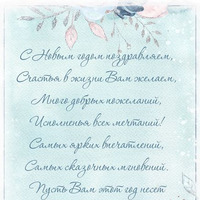 С Новым годом поздравляем,
Счастья в жизни Вам желаем,
Много добрых пожеланий,
Исполненья всех мечтаний!
Самых ярких впечатлений,
Самых сказочных мгновений.
Пусть Вам этот год несет